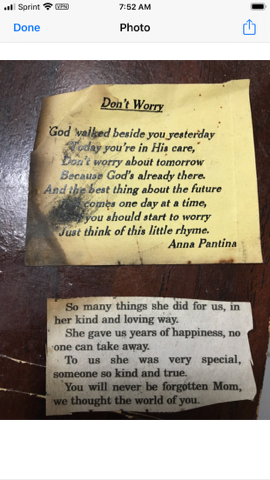 Sprint VPN 7:52 AM
Done Photo
Don't Worry
God walked beside you yesterday
Today you're in His care,
Don't worry about tomorrow
Because God's already there.
And the best thing about the future
comes one day at a time,
you should start to worry
Just think of this little rhyme.
Anna Pantina
So many things she did for us, in
her kind and loving way.
She gave us years of happiness, no
one can take away.
To us she was very special,
someone so kind and true.
You will never be forgotten Mom,
we thought the world of you.